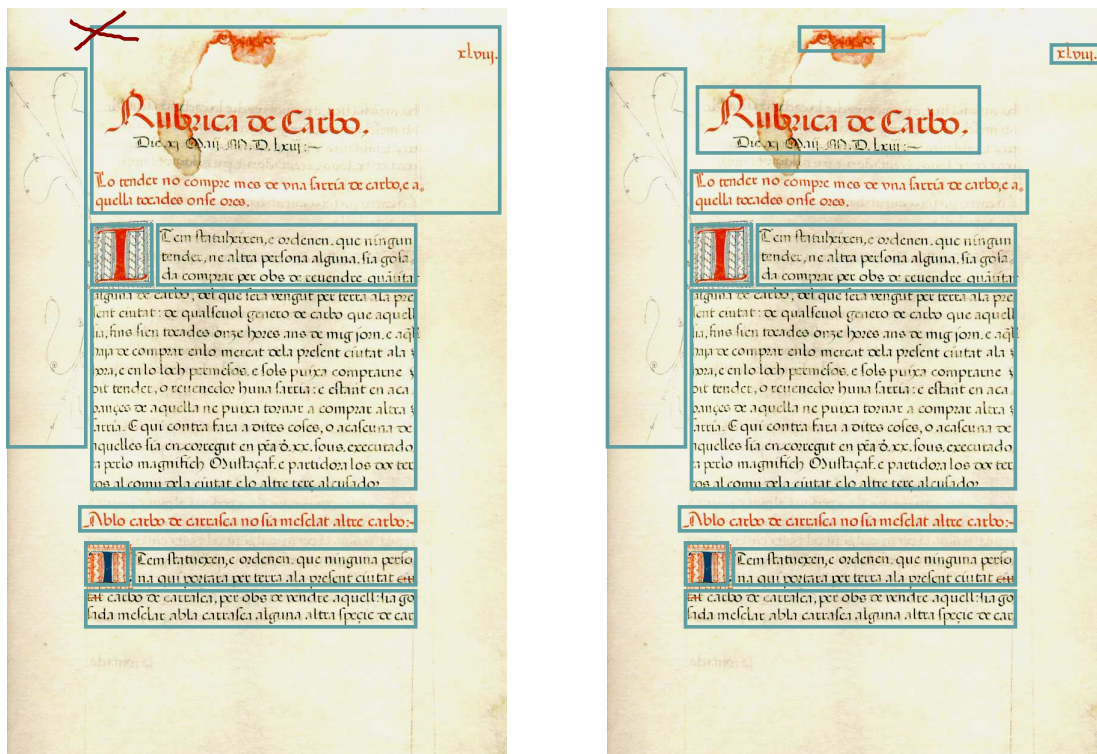 xlviii.
Rubrica de Carbo.
Die xi Maii M. D. lxiii:~
Lo tender no compre mes de vna sarria de carbo, e a,
quella tocades onse ores.
ITem statuheixen, e ordenen. que ningun
tender, ne altra persona alguna, sia gosa,
da comprar per obs de reuendre quātitat
alguna de carbo, del que sera vengut per terra ala pre
sent ciutat: de qualseuol genero de carbo que aquell
sia, fins sien tocades onze hores ans de mig jorn. e aqll
haja de comprar enlo mercat dela present ciutat ala
hora, e en lo loch permesos. e sols puixa comprarne
dit tender, o reuenedor huna sarria: e estant en aca
bances de aquella ne puixa tornar a comprar altra
sarria. E qui contra fara a dites coses, o acascuna de
aquelles sia en corregut en pēa d. xx. sous. executado
ra perlo magnifich Mustaçaf. e partidora los dos ter
ços al comu dela ciutat e lo altre terç al cusador
Ablo carbo de carrasca no sia mesclat altre carbo:~
ITem statuexen, e ordenen. que ninguna perso
na qui portara per terra ala present ciutat ciu
tat carbo de carrasca, per obs de vendre aquell: sia go
sada mesclar abla carrasca alguna altra specie de car
xlviii.
Rubrica de Carbo.
Die xi Maii M. D. lxiii:~
Lo tender no compre mes de vna sarria de carbo, e a,
quella tocades onse ores.
ITem statuheixen, e ordenen. que ningun
tender, ne altra persona alguna, sia gosa,
da comprar per obs de reuendre quātitat
alguna de carbo, del que sera vengut per terra ala pre
sent ciutat: de qualseuol genero de carbo que aquell
sia, fins sien tocades onze hores ans de mig jorn. e aqll
haja de comprar enlo mercat dela present ciutat ala
hora, e en lo loch permesos. e sols puixa comprarne
dit tender, o reuenedor huna sarria: e estant en aca
bances de aquella ne puixa tornar a comprar altra
sarria. E qui contra fara a dites coses, o acascuna de
aquelles sia en corregut en pēa d. xx. sous. executado
ra perlo magnifich Mustaçaf. e partidora los dos ter
ços al comu dela ciutat e lo altre terç al cusador
Ablo carbo de carrasca no sia mesclat altre carbo:~
ITem statuexen, e ordenen. que ninguna perso
na qui portara per terra ala present ciutat ciu
tat carbo de carrasca, per obs de vendre aquell: sia go
sada mesclar abla carrasca alguna altra specie de car